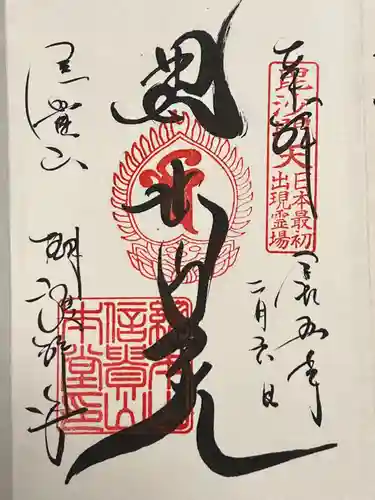 奉拝
毘沙門天
日本最初
出現霊場
令和五年
二月六日
毘沙門天
総本山
信貴山
本堂印
信貴山
朝護孫子寺